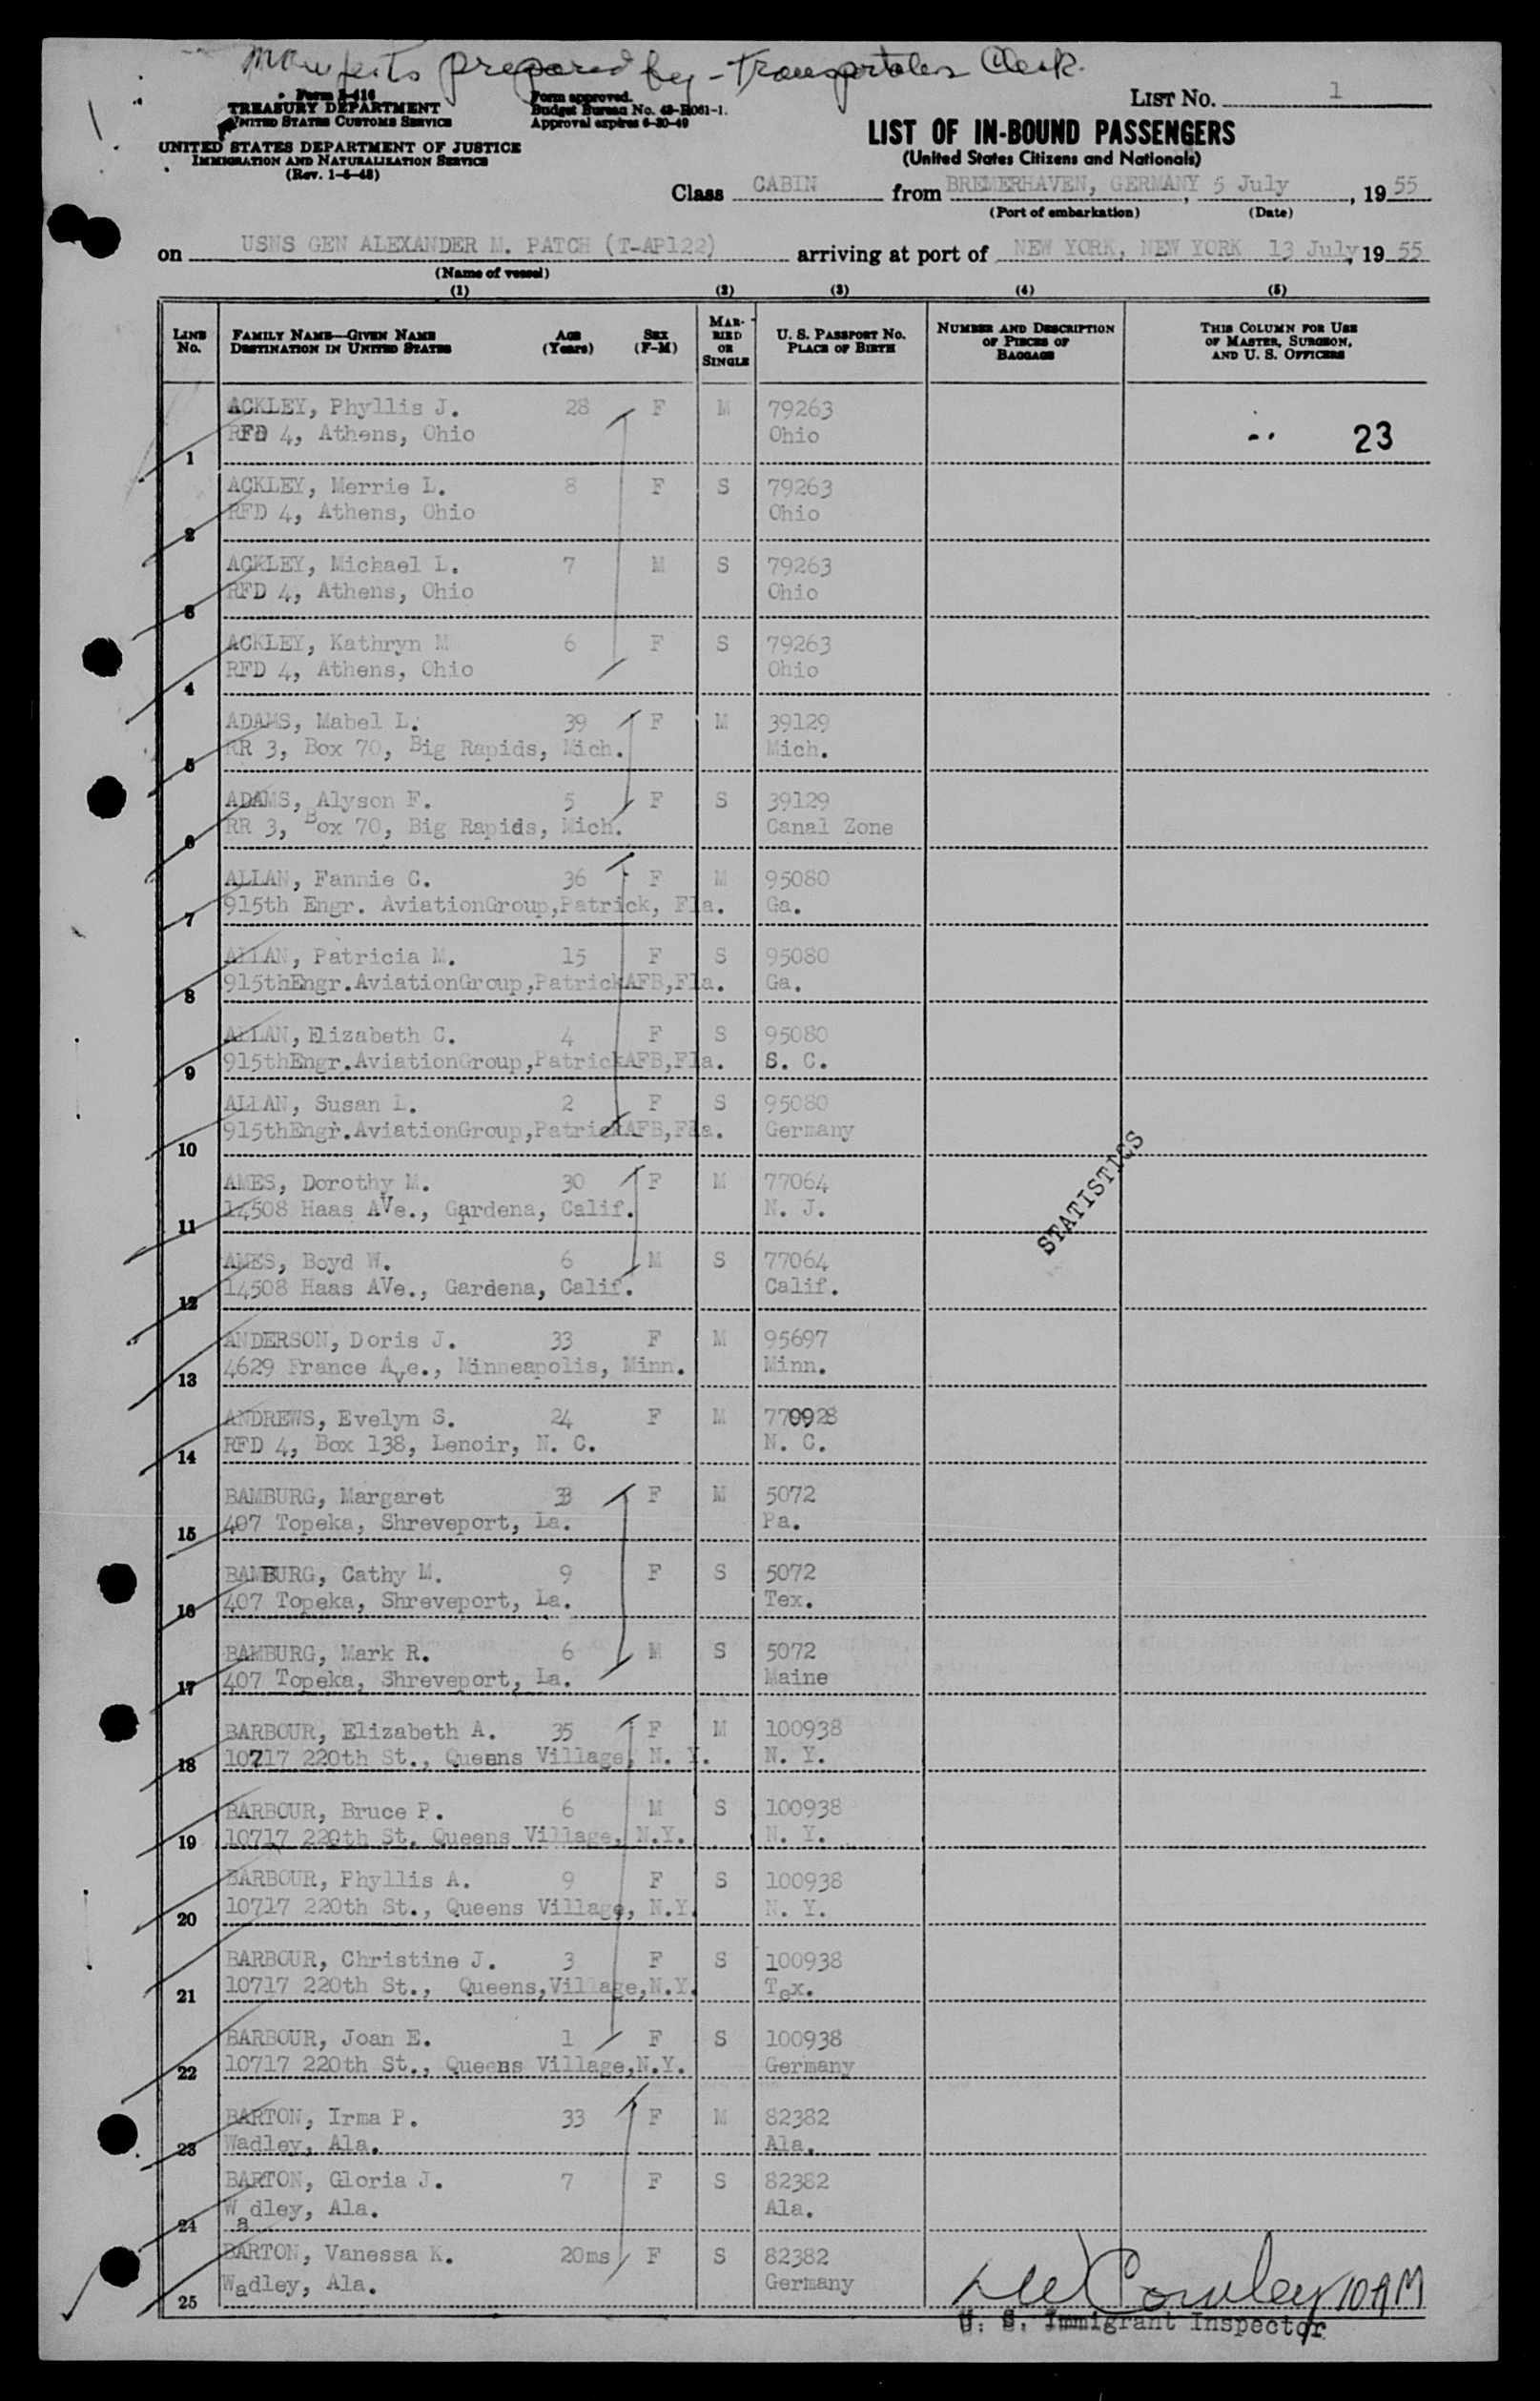 Manifests prepared by - Transportation Clerk.
Form I-416
TREASURY DEPARTMENT
UNITED STATES CUSTOMS SERVICE
UNITED STATES DEPARTMENT OF JUSTICE
IMMIGRATION AND NATURALIZATION SERVICE
(Rev. 1-6-48)
Form approved.
Budget Bureau No. 43-R061-1.
Approval expires 6-30-49
LIST NO. 1
LIST OF IN-BOUND PASSENGERS
(United States Citizens and Nationals)
Class CABIN from BREMERHAVEN, GERMANY, 5 July, 1955
(Port of embarkation) (Date)
on USNS GEN ALEXANDER M. PATCH (T-AP122) arriving at port of NEW YORK, NEW YORK 13 July, 1955
(Name of vessel)
(1) (2) (3) (4) (5)
LINE NO. FAMILY NAME—GIVEN NAME DESTINATION IN UNITED STATES AGE (Years) SEX (F-M) MARRIED OR SINGLE U. S. PASSPORT NO. PLACE OF BIRTH NUMBER AND DESCRIPTION OF PIECES OF BAGGAGE THIS COLUMN FOR USE OF MASTER, SURGEON, AND U. S. OFFICERS
ACKLEY, Phyllis J. 28 F M 79263
1 RFD 4, Athens, Ohio Ohio 23
ACKLEY, Merrie L. 8 F S 79263
2 RFD 4, Athens, Ohio Ohio
ACKLEY, Michael L. 7 M S 79263
3 RFD 4, Athens, Ohio Ohio
ACKLEY, Kathryn M 6 F S 79263
4 RFD 4, Athens, Ohio Ohio
ADAMS, Mabel L. 39 F M 39129
5 RR 3, Box 70, Big Rapids, Mich. Mich.
ADAMS, Alyson F. 5 F S 39129
6 RR 3, Box 70, Big Rapids, Mich. Canal Zone
ALLAN, Fannie C. 36 F M 95080
7 915th Engr. AviationGroup,Patrick, Fla. Ga.
ALLAN, Patricia M. 15 F S 95080
8 915thEngr.AviationGroup,PatrickAFB,Fla. Ga.
ALLAN, Elizabeth C. 4 F S 95080
9 915thEngr.AviationGroup,PatrickAFB,Fla. S. C.
ALLAN, Susan L. 2 F S 95080
10 915thEngr.AviationGroup,PatrickAFB,Fla. Germany
AMES, Dorothy M. 30 F M 77064
11 14508 Haas AVe., Gardena, Calif. N. J.
AMES, Boyd W. 6 M S 77064
12 14508 Haas AVe., Gardena, Calif. Calif.
STATISTICS
ANDERSON, Doris J. 33 F M 95697
13 4629 France Ave., Minneapolis, Minn. Minn.
ANDREWS, Evelyn S. 24 F M 770928
14 RFD 4, Box 138, Lenoir, N. C. N. C.
BAMBURG, Margaret 33 F M 5072
15 407 Topeka, Shreveport, La. Pa.
BAMBURG, Cathy M. 9 F S 5072
16 407 Topeka, Shreveport, La. Tex.
BAMBURG, Mark R. 6 M S 5072
17 407 Topeka, Shreveport, La. Maine
BARBOUR, Elizabeth A. 35 F M 100938
18 10717 220th St., Queens Village, N. Y. N. Y.
BARBOUR, Bruce P. 6 M S 100938
19 10717 220th St. Queens Village, N.Y. N. Y.
BARBOUR, Phyllis A. 9 F S 100938
20 10717 220th St., Queens Village, N.Y. N. Y.
BARBOUR, Christine J. 3 F S 100938
21 10717 220th St., Queens,Village,N.Y. Tex.
BARBOUR, Joan E. 1 F S 100938
22 10717 220th St., Queens Village,N.Y. Germany
BARTON, Irma P. 33 F M 82382
23 Wadley, Ala. Ala.
BARTON, Gloria J. 7 F S 82382
24 Wadley, Ala. Ala.
BARTON, Vanessa K. 20ms F S 82382
25 Wadley, Ala. Germany
Cowley 10 AM
U. S. Immigrant Inspector